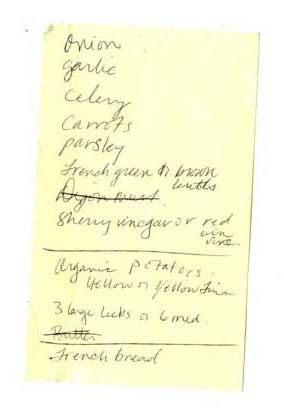 onion
garlic
celery
carrots
parsley
French green or brown
lentils
Dijon must.
Sherry vinegar or red
win
vine.
Organic potatoes.
Yellow or Yellow Finn
3 large leeks or 6 med.
Butter
French bread